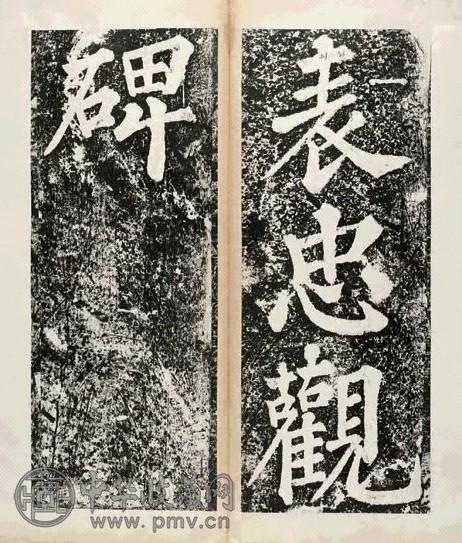 表忠觀
碑
中华收藏网
www.pmv.cn